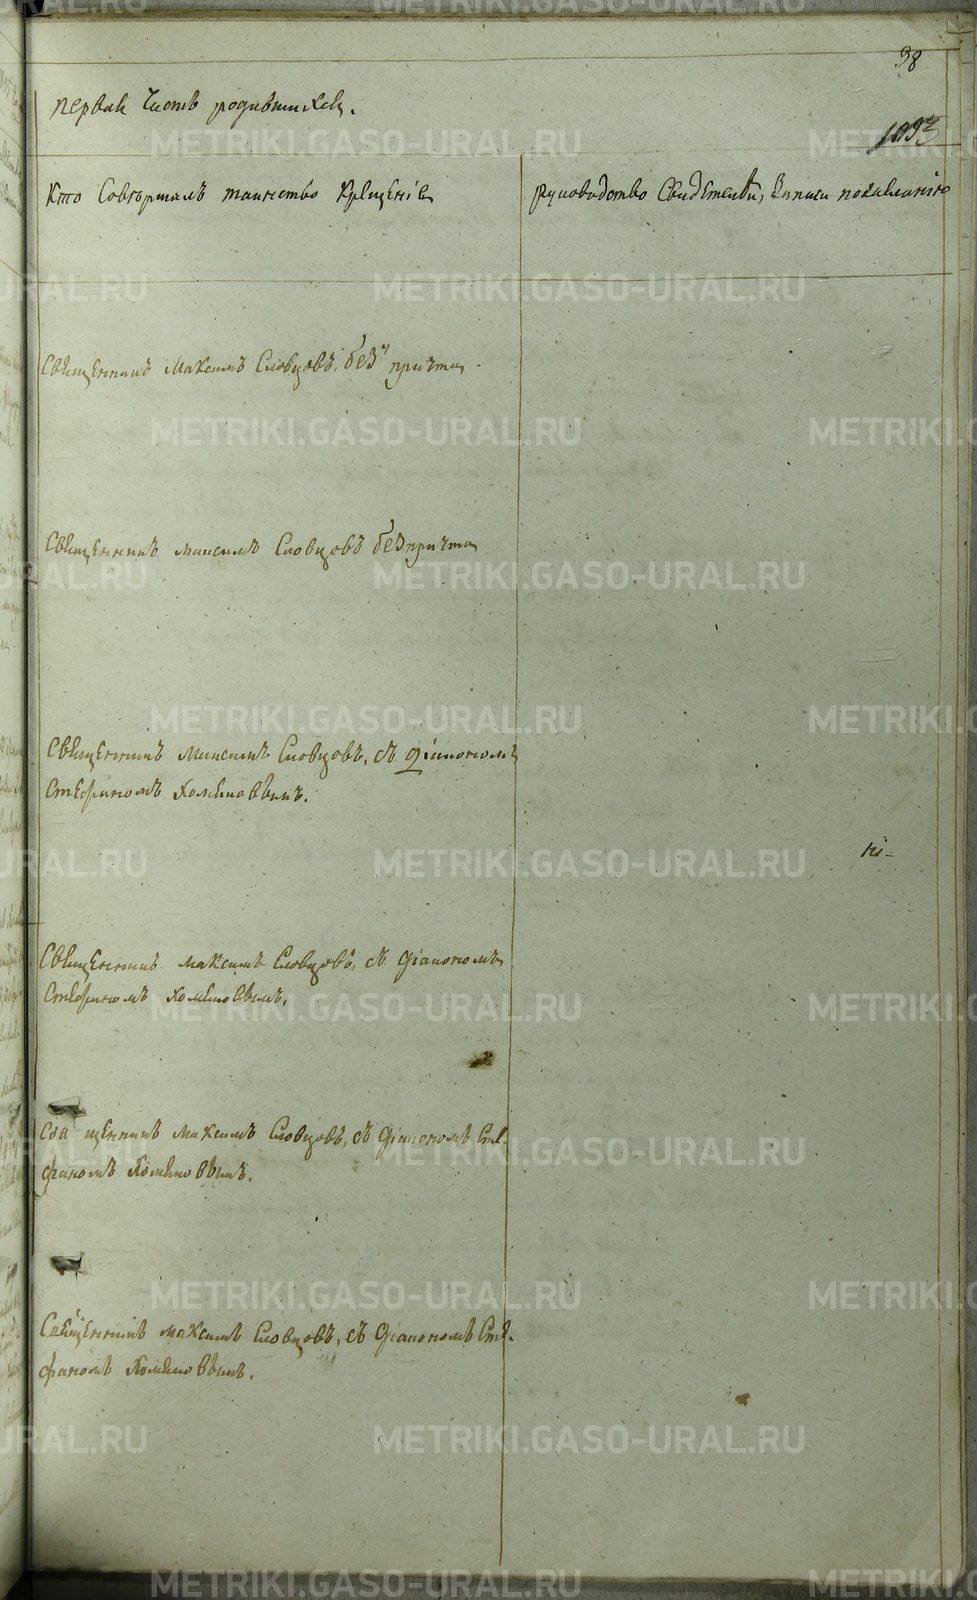 38
первая Часть родившихся.
Кто Совершалъ таинство Крещенiя
руководство Свидетелей, Записи по желанiю
Священникъ Максимъ Словцовъ, безъ причта
Священникъ максимъ Словцовъ без причта
Священникъ Максимъ Словцовъ, съ Дiакономъ
Стефаномъ
Священникъ максимъ Словцовъ, съ Дiакономъ
Стефаномъ
Священникъ максимъ Словцовъ, съ Дiакономъ Сте-
фаномъ
Священникъ максимъ Словцовъ, съ Дiакономъ Сте-
фаномъ
METRIKI.GASO-URAL.RU